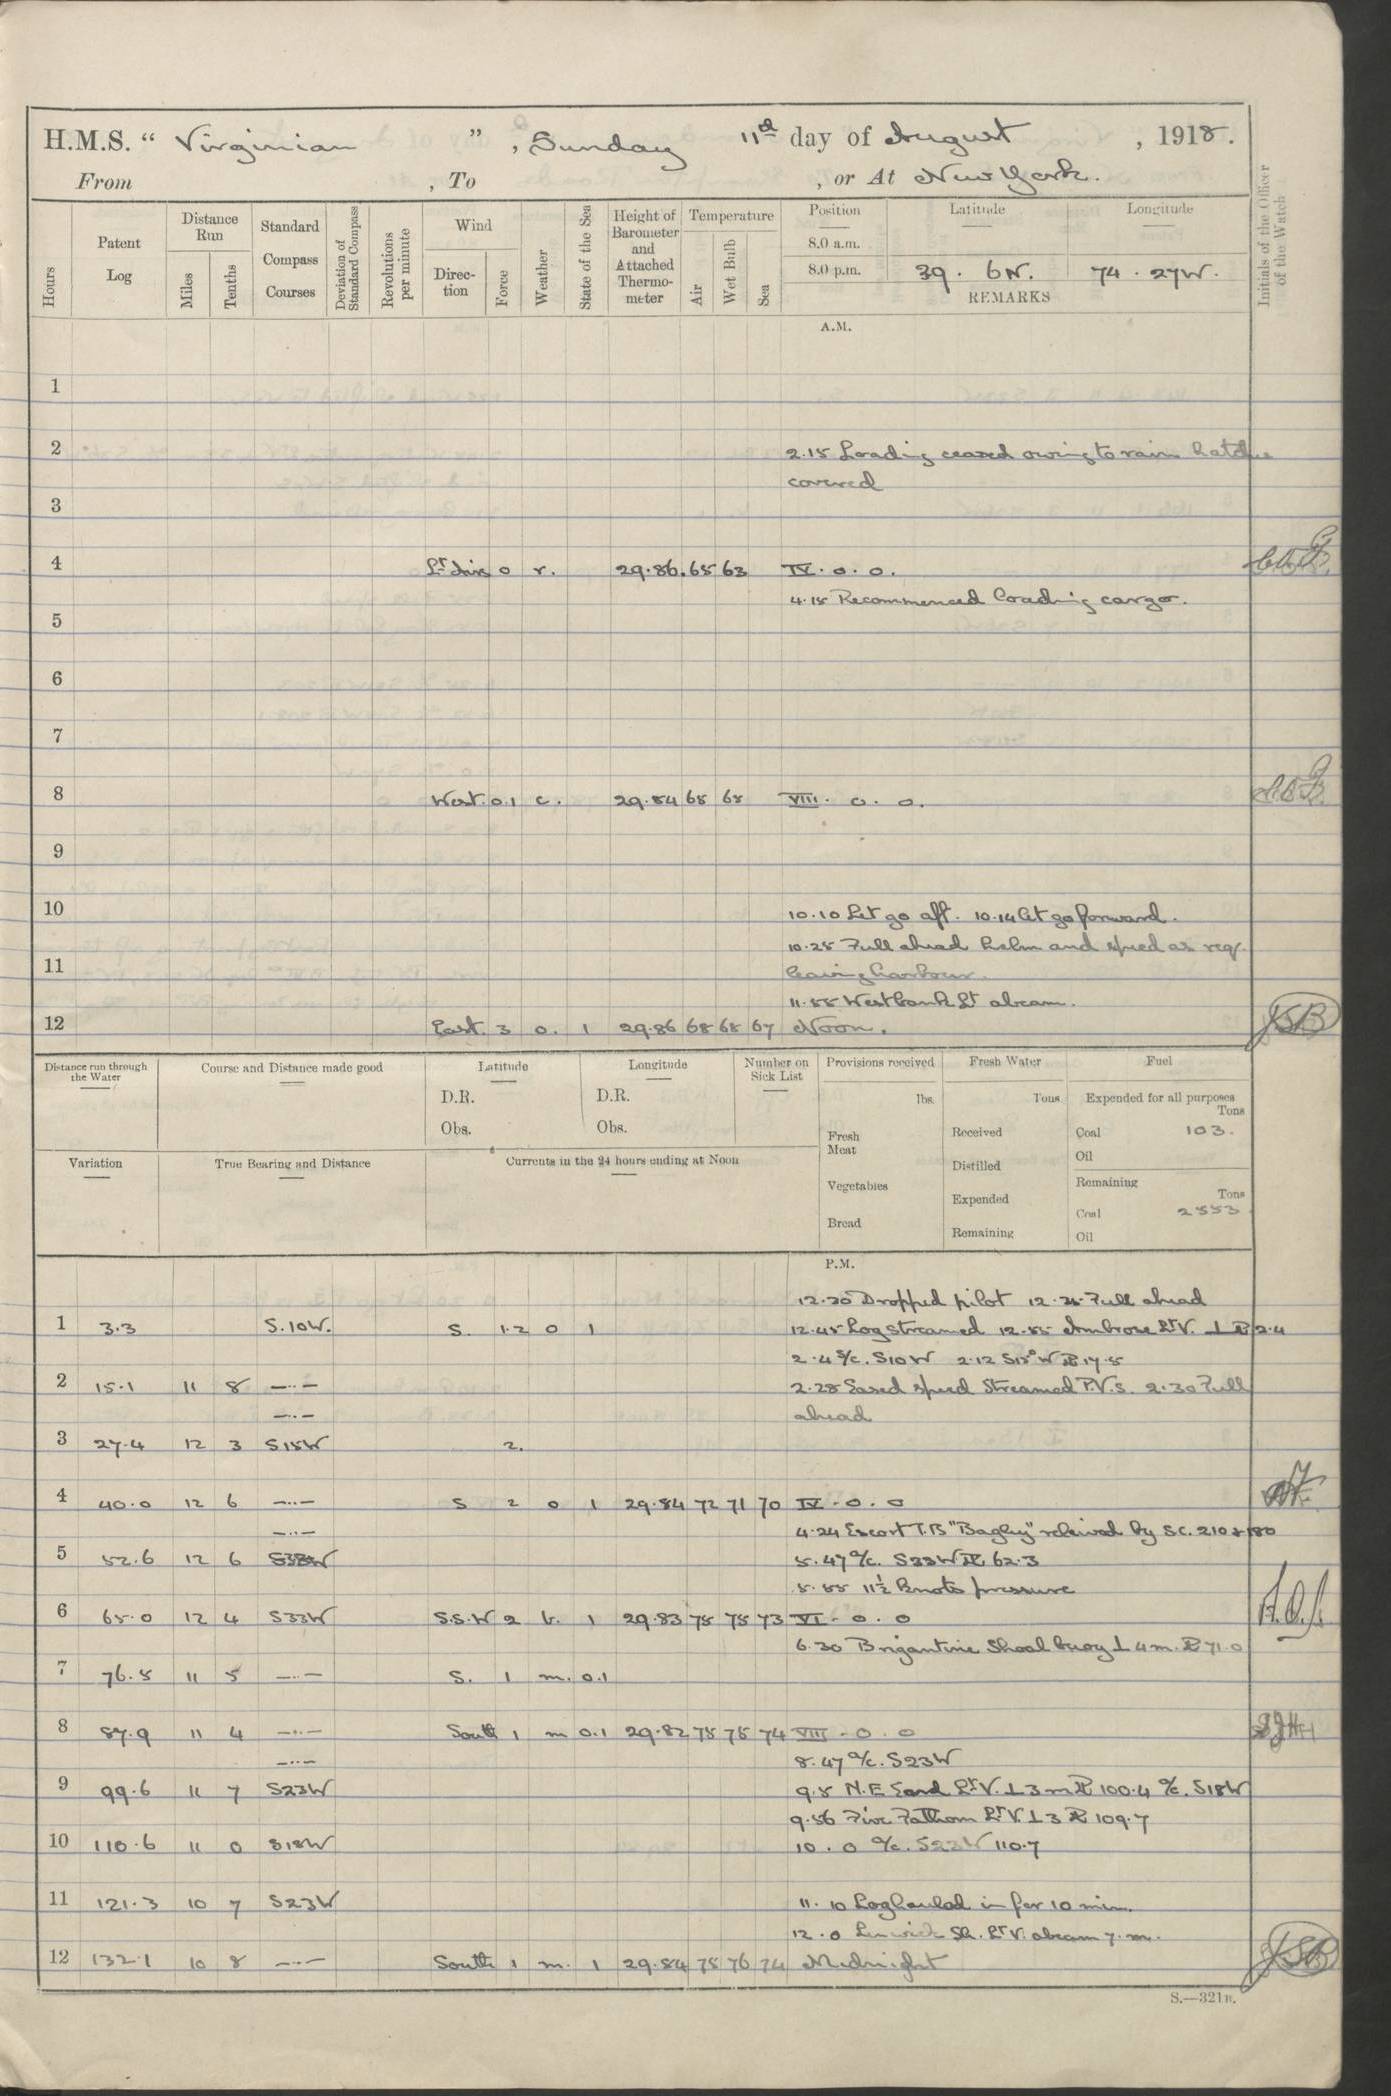 H.M.S. " Virginian " , Sunday 11th day of August , 1918.
From , To , or At New York.
Hours
Patent Log
Distance Run
Miles
Tenths
Standard Compass Courses
Deviation of Standard Compass
Revolutions per minute
Wind
Direction
Force
Weather
State of the Sea
Height of Barometer and Attached Thermometer
Temperature
Air
Wet Bulb
Sea
Position
Latitude
Longitude
8.0 a.m.
8.0 p.m. 39 . 6 N. 74 . 27 W.
REMARKS
Initials of the Officer of the Watch
A.M.
1
2 2.15 Loading ceased owing to rain hatches
covered
3
4 Lt airs 0 r. 29.86. 65 63 IV . 0 . 0.
4.15 Recommenced loading cargo.
5
6
7
8 West. 0.1 c. 29.84 65 65 VIII . 0 . 0.
9
10 10.10 Let go aft. 10.14 let go forward.
10.25 Full ahead helm and speed as req.
11 leaving harbour.
11.55 Westbank Lt abeam.
12 East. 3 0. 1 29.86 68 68 67 Noon. JSB
Distance run through the Water
Course and Distance made good
Latitude
D.R.
Obs.
Longitude
D.R.
Obs.
Number on Sick List
Provisions received
lbs.
Fresh Meat
Vegetables
Bread
Fresh Water
Tons
Received
Distilled
Expended
Remaining
Fuel
Expended for all purposes
Tons
Coal 103.
Oil
Remaining
Tons
Coal 2553
Oil
Variation
True Bearing and Distance
Currents in the 24 hours ending at Noon
P.M.
12.20 Dropped pilot 12.25 Full ahead
1 3.3 S.10W. S. 1.2 0 1 12.45 Log streamed 12.55 Ambrose Lt V. ⊥ PL 2.4
2.4 S/c. S10W 2.12 S15°W PL 17.5
2 15.1 11 8 —..— 2.28 Eased speed Streamed P.V.s. 2.30 Full
—..— ahead
3 27.4 12 3 S15W 2.
4 40.0 12 6 —..— S 2 0 1 29.84 72 71 70 IV . 0 . 0
—..— 4.24 Escort T.B "Bagley" relieved by S.C. 210 & 180
5 52.6 12 6 S33W 5.47 a/c. S33W PL 62.3
5.55 11½ knots pressure
6 65.0 12 4 S33W S.S.W 2 b. 1 29.83 75 75 73 VI . 0 . 0
6.30 Brigantine Shoal buoy ⊥ 4 m. PL 71.0
7 76.5 11 5 —..— S. 1 m. 0.1
8 87.9 11 4 —..— South 1 m 0.1 29.82 75 75 74 VIII . 0 . 0
—..— 8.47 a/c. S23W
9 99.6 11 7 S23W 9.5 N.E Sand Lt V. ⊥ 3 m PL 100.4 a/c. S18W
9.56 Five Fathom Lt V. ⊥ 3 PL 109.7
10 110.6 11 0 S18W 10 . 0 a/c. S23W 110.7
11 121.3 10 7 S23W 11.10 Log hauled in for 10 min.
12.0 Sh. Lt V. abeam 7. m.
12 132.1 10 8 —..— South 1 m. 1 29.84 75 76 74 Midnight JSB
S.—321B.